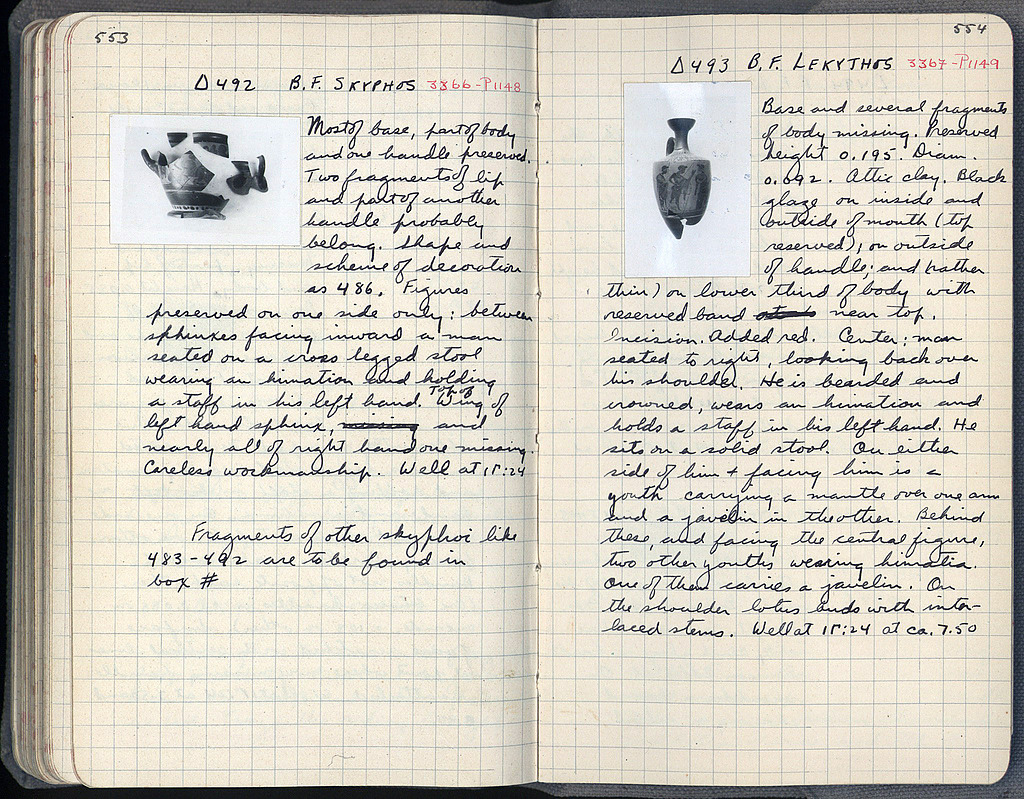 553
Δ492 B.F. SKYPHOS 3366-P1148
Most of base, part of body
and one handle preserved.
Two fragments of lip
and part of another
handle probably
belong. Shape and
scheme of decoration
as 486. Figures
preserved on one side only: between
sphinxes facing inward a man
seated on a cross legged stool
wearing an himation and holding
a staff in his left hand. Top of Wing of
left hand sphinx, missing and
nearly all of right hand one missing.
Careless workmanship. Well at ΙΓ:24
Fragments of other skyphoi like
483-492 are to be found in
box #
554
Δ493 B.F. LEKYTHOS 3367-P1149
Base and several fragments
of body missing. Preserved
height 0.195. Diam.
0.092. Attic clay. Black
glaze on inside and
outside of mouth (top
reserved); on outside
of handle; and (rather
thin) on lower third of body with
reserved band near top.
Incision. Added red. Center: man
seated to right, looking back over
his shoulder. He is bearded and
crowned, wears an himation and
holds a staff in his left hand. He
sits on a solid stool. On either
side of him + facing him is a
youth carrying a mantle over one arm
and a javelin in the other. Behind
these, and facing the central figure,
two other youths wearing himatia.
One of them carries a javelin. On
the shoulder lotus buds with inter-
laced stems. Well at ΙΓ:24 at ca. 7.50